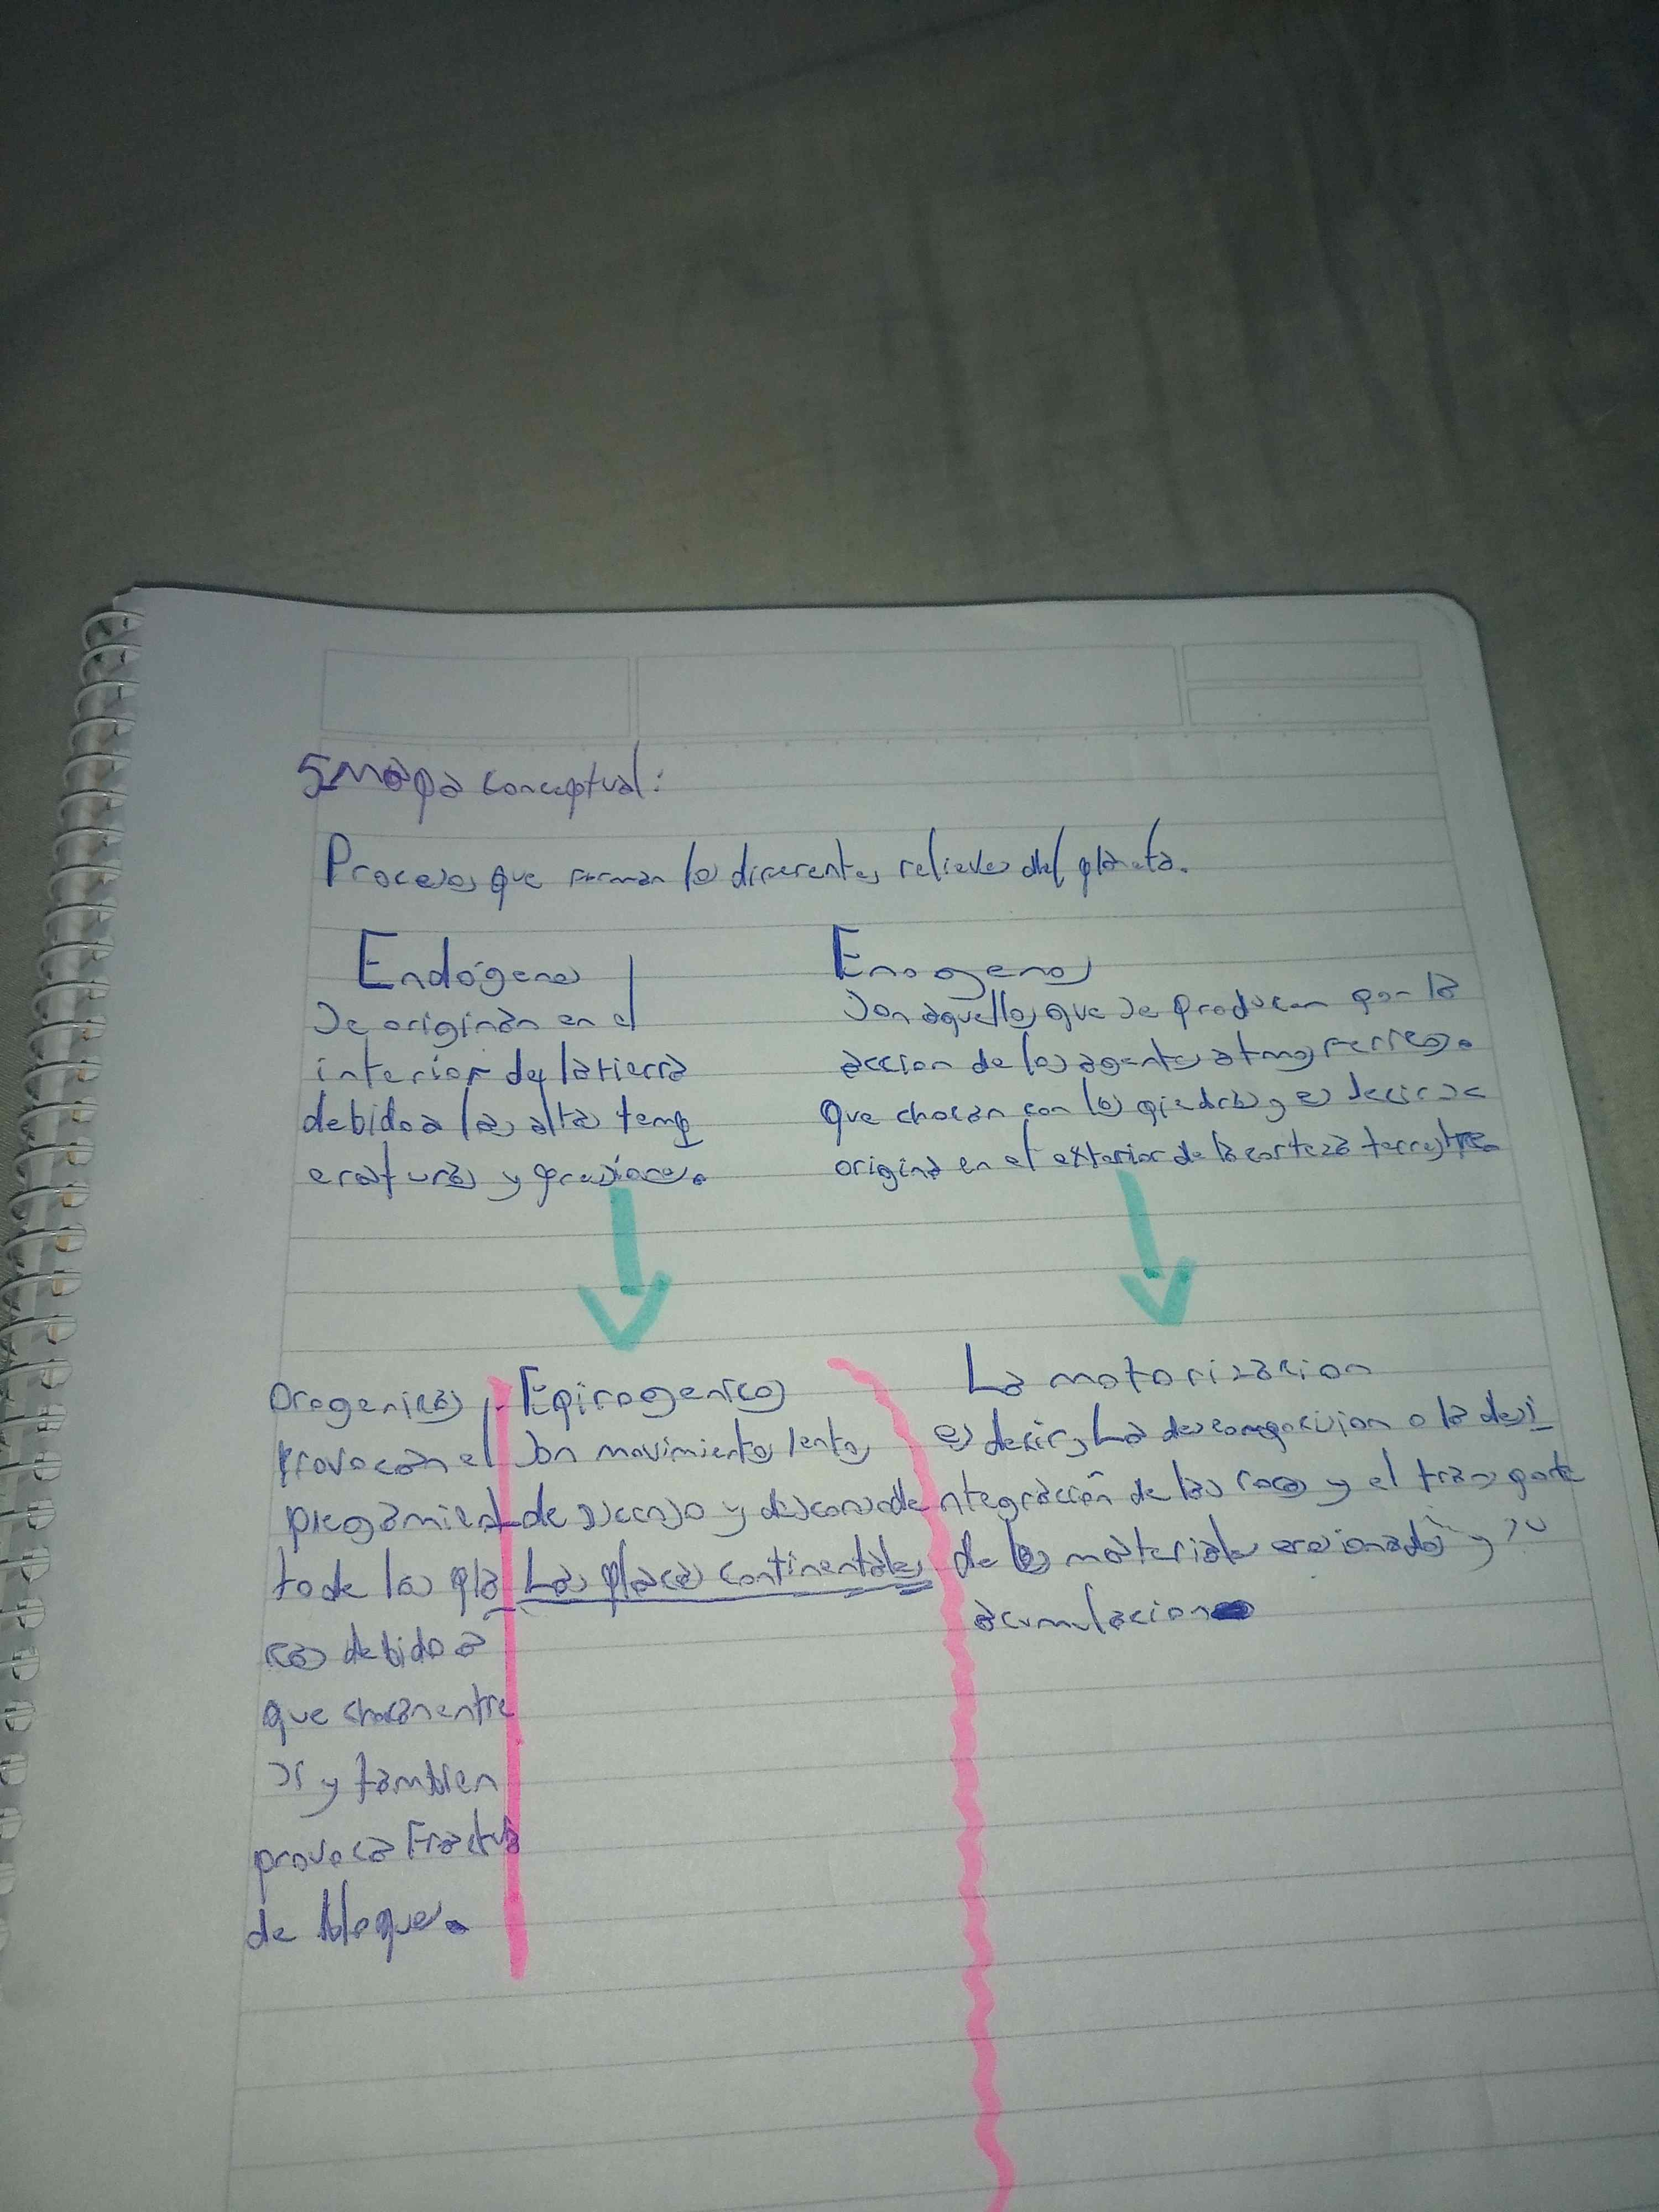 5 Mapa conceptual:
Procesos que forman los diferentes relieves del planeta.
Endógenos
Se originan en el
interior de la tierra
debido a las altas temp
eraturas y presiones.
Enogenos
Son aquellos que se producen por la
accion de los agentes atmosfericos.
que chocan con las piedras y es decir se
origina en el exterior de la corteza terrestre.
Orogenicos
Provocan el
plegamien
to de las pla
cas debido a
que chocan entre
si y tambien
provoca Fractura
de bloques.
Epirogenicos
Son movimientos lentos
de ascenso y descenso de
Las placas continentales
La motorizacion
es decir, La descomposicion o la desi
ntegración de las rocas y el transporte
de los materiales erosionados y su
acumulacion